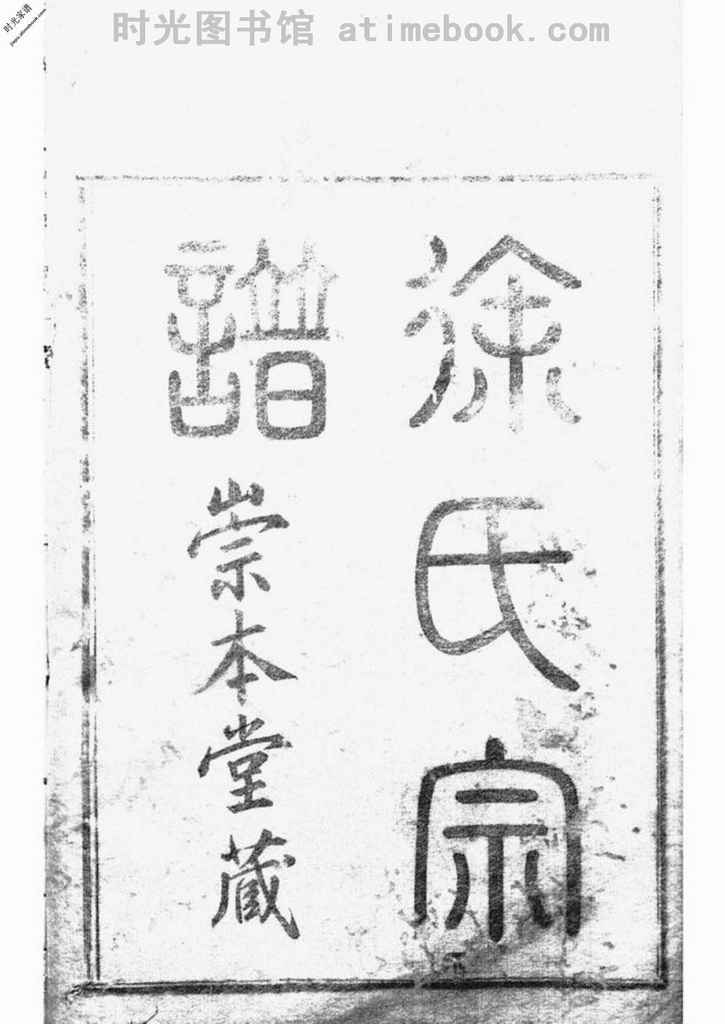 时光图书馆 atimebook.com
时光家谱
徐氏宗
譜
崇本堂藏